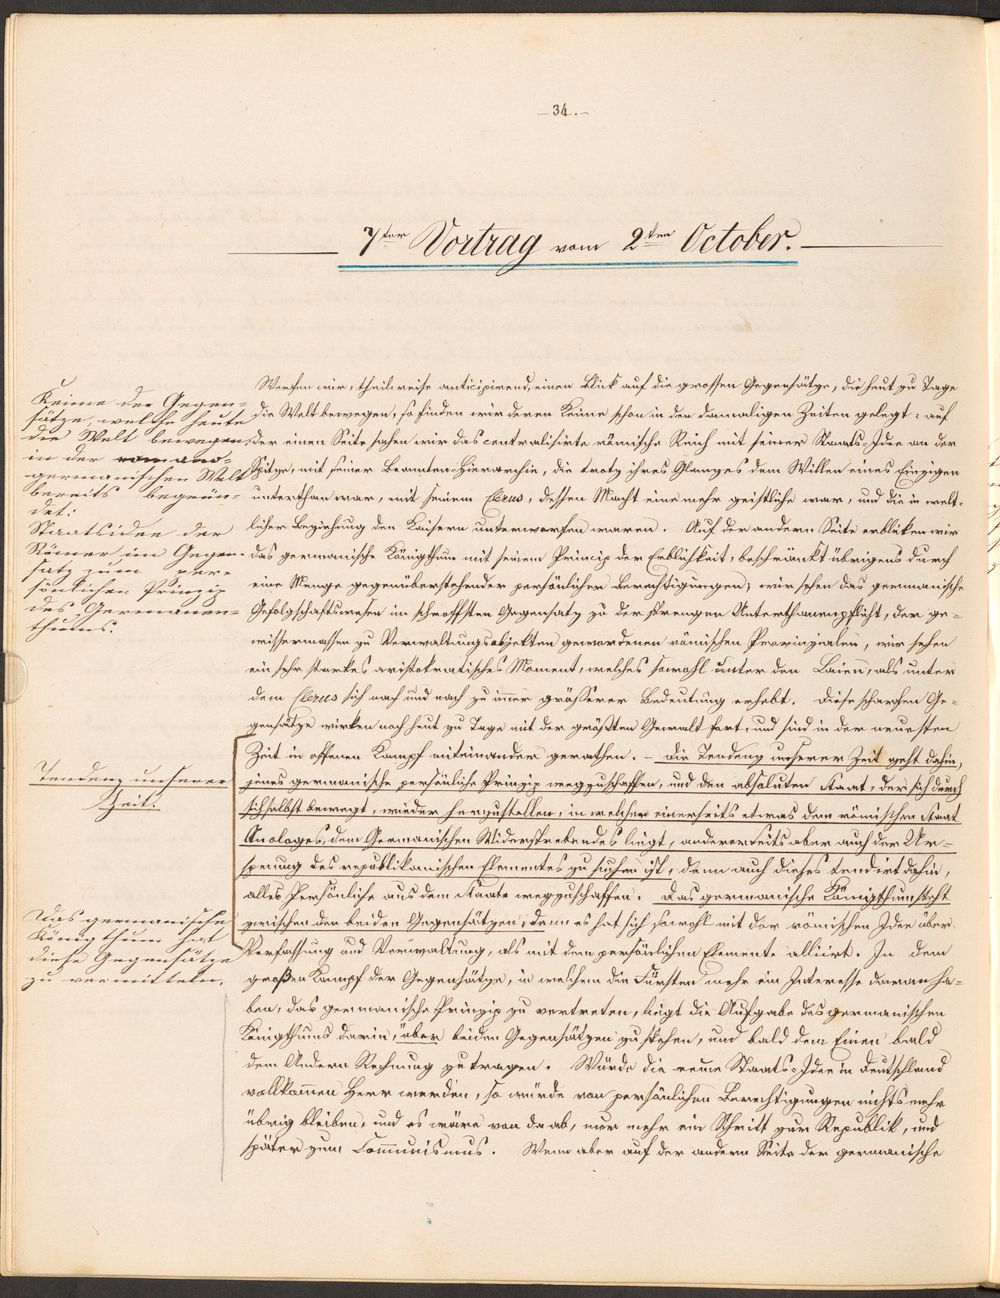 - 34. -
7ter Vortrag vom 2ten October.
Keime der Gegen-
sätze, welche heute
die Welt bewegen,
in der romano-
germanischen Welt
bereits begrün-
det:
Staatsidee der
Römer im Gegen-
satz zum per-
sönlichen Prinzip
des Germanen-
thums.
Werfen wir, theilweise anticipirend, einen Blick auf die grossen Gegensätze, die heut zu Tage
die Welt bewegen, so finden wir deren Keime schon in den damaligen Zeiten gelegt: auf
der einen Seite sahen wir das centralisirte römische Reich mit seiner Staats-Idee an der
Spitze, mit seiner Beamten-Hierarchie, die trotz ihres Glanzes dem Willen eines Einzigen
unterthan war, mit seinem Clerus, dessen Macht eine mehr geistliche war, und die in welt-
licher Beziehung den Kaisern unterworfen waren. Auf der andern Seite erblicken wir
das germanische Königthum mit seinem Princip der Erblichkeit, beschränkt übrigens durch
eine Menge gegenüberstehender persönlicher Berechtigungen; wir sehen das germanische
Gefolgschaftswesen im schroffsten Gegensatz zu der strengen Unterthanenpflicht, der ge-
wissermassen zu Verwaltungsobjekten gewordenen römischen Provinzialen, wir sehen
ein sehr starkes aristokratisches Moment, welches sowohl unter den Laien, als unter
dem Clerus sich nach und nach zu immer größerer Bedeutung erhebt. Diese scharfen Ge-
gensätze wirken noch heut zu Tage mit der größten Gewalt fort, und sind in der neuesten
Zeit in offenen Kampf miteinander gerathen. - Die Tendenz unserer Zeit geht dahin,
jenes germanische persönliche Prinzip wegzuschaffen, und den absoluten Staat, der sich durch
sich selbst bewegt, wieder herzustellen, in welcher einerseits etwas dem römischen Staat
Analoges, dem Germanischen Widerstrebendes liegt, andererseits aber auch der Ur-
sprung des republikanischen Elementes zu suchen ist, denn auch dieses tendirt dahin,
alles Persönliche aus dem Staate wegzuschaffen. Das germanische Königthum steht
zwischen den beiden Gegensätzen; denn es hat sich sowohl mit der römischen Idee über
Verfassung und Verwaltung, als mit dem persönlichen Elemente alliirt. In dem
großen Kampf der Gegensätze, in welchem die Fürsten mehr ein Interesse daran ha-
ben, das germanische Prinzip zu vertreten, liegt die Aufgabe des germanischen
Königthums darin, über beiden Gegensätzen zu stehen, und bald dem Einen bald
dem Andern Rechnung zu tragen. Würde die reine Staats-Idee in Deutschland
vollkommen Herr werden, so würde von persönlichen Berechtigungen nichts mehr
übrig bleiben, und es wäre von da ab, nur mehr ein Schritt zur Republik, und
später zum Communismus. Wenn aber auf der andern Seite der germanische
Tendenz unserer
Zeit.
Das germanische
Königthum hat
diese Gegensätze
zu vermitteln.